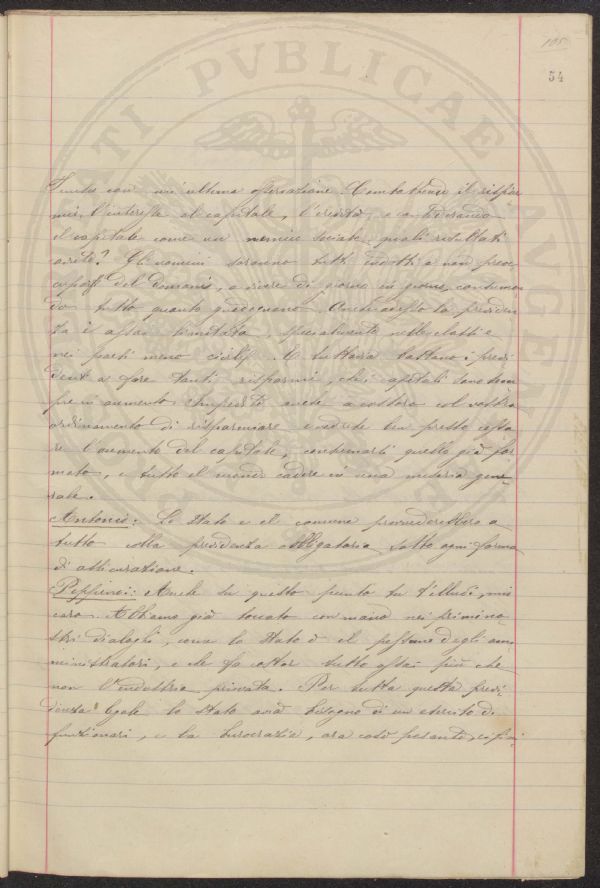 105
54
con un'ultima osservazione. Combattendo il rispar
mio, l'interesse al capitale, l'eredità, e considerando
il capitale come un nemico sociale, quali risultati
avrete? Gli uomini saranno tutti indotti a non preoc
cuparsi del domani, a vivere di giorno in giorno, consuman
do tutto quanto guadagnano. Anche adesso la previden
za è assai limitata, specialmente nelle classi e
nei paesi meno civili. E tuttavia bastano i previ
denti a fare tanti risparmi, che i capitali sono sem
pre in aumento. Impedite anche a costoro col vostro
ordinamento di risparmiare e vedrete ben presto cessa
re l'aumento del capitale, consumarsi quello già for
mato, e tutto il mondo cadere in una miseria gene
rale.
Antonio: Lo Stato e il comune provvederebbero a
tutto colla previdenza obbligatoria sotto ogni forma
di assicurazione.
Peppino: Anche su questo punto tu t'illudi, mio
caro. Abbiamo già toccato con mano nei primi no
stri dialoghi, come lo Stato è il pessimo degli am
ministratori, e che fa costar tutto assai più che
non l'industria privata. Per tutta questa previ
denza legale lo Stato avrà bisogno di un esercito di
funzionari, e la burocrazia, ora così pesante,